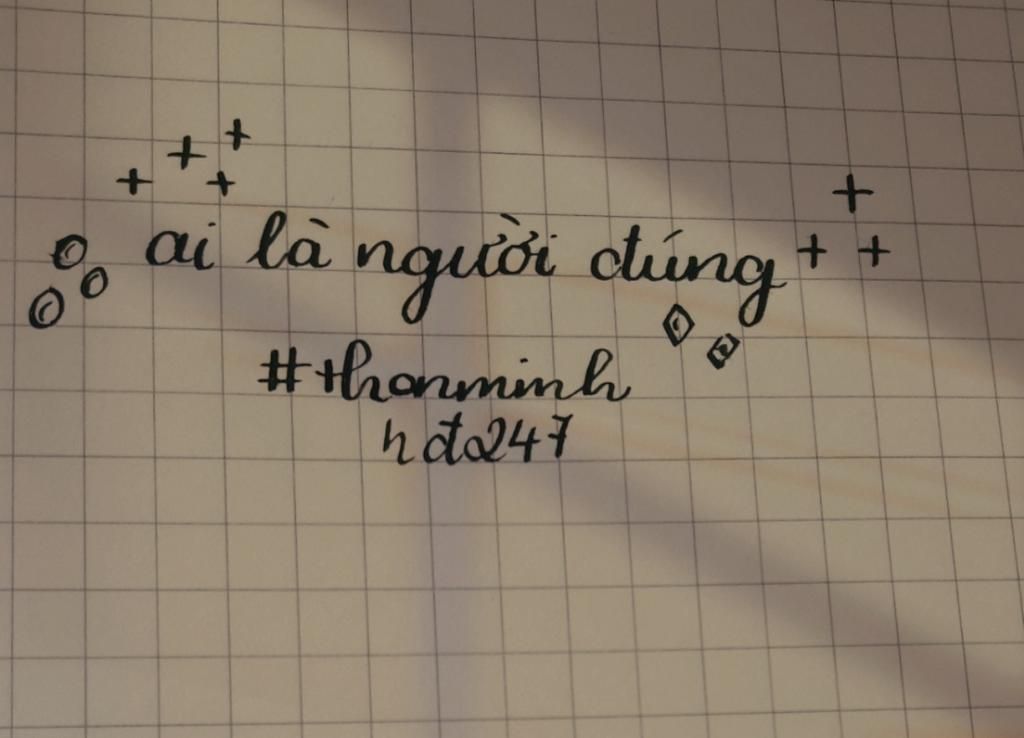 ai là người đúng
#thanminh
hđ247